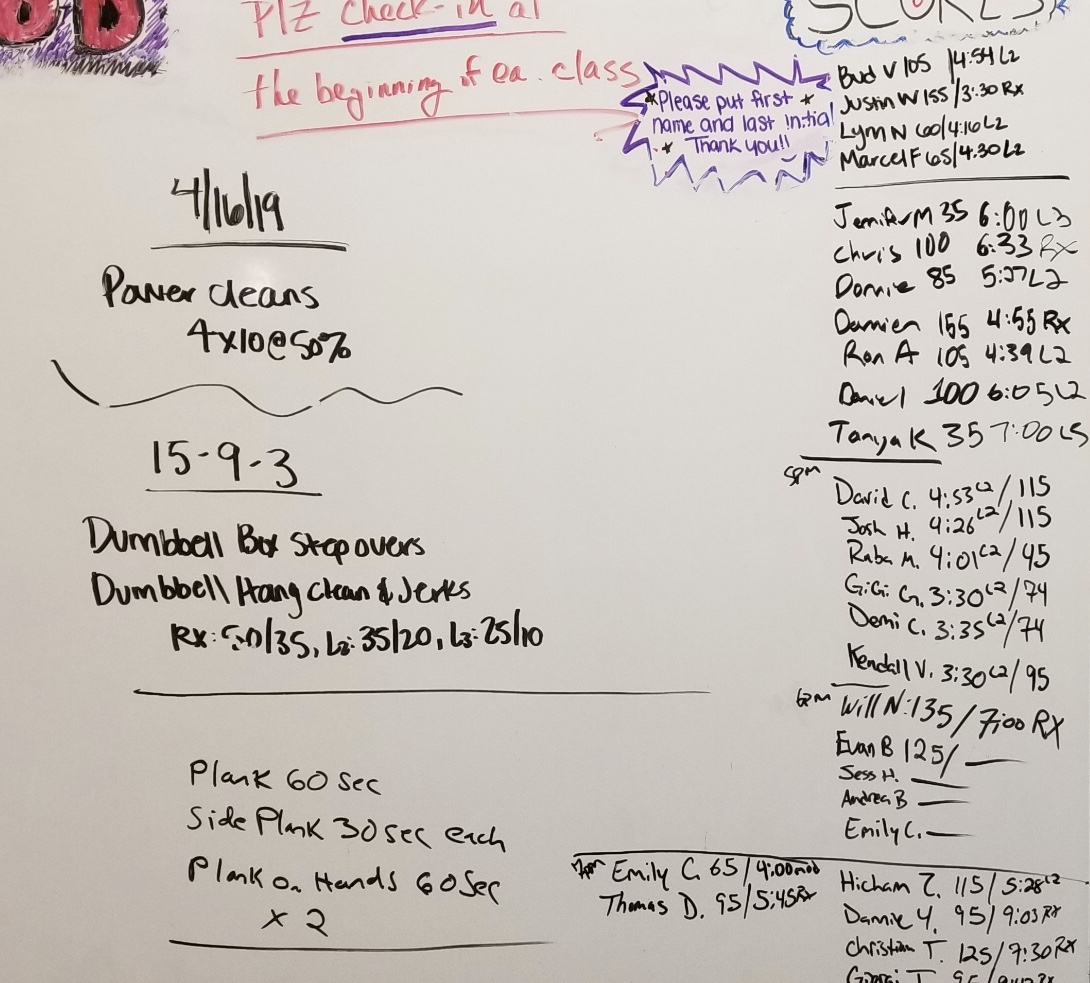 Plz check-in at
the beginning of ea. class
*Please put first *
name and last initial
* Thank you!!
4/16/19
Power cleans
4x10@50%
15-9-3
Dumbbell Box Stepovers
Dumbbell Hang clean & Jerks
Rx: 50/35, L2: 35/20, L3: 25/10
Plank 60 sec
Side Plank 30 sec each
Plank on Hands 60 Sec
x 2
SCORES
Bud V 105 /4:54 L2
Justin W 155 /3:30 Rx
Lynn N 60/4:16 L2
Marcel F 65/4:30 L2
Jennifer M 35 6:00 L3
Chris 100 6:33 Rx
Donnie 85 5:27 L2
Damien 155 4:55 Rx
Ron A 105 4:39 L2
Daniel 100 6:05 L2
Tanya K 35 7:00
5pm
David C. 4:53 L2/115
Josh H. 4:26 L2/115
Raba M. 4:01 L2/45
GiGi G. 3:30 L2/74
Demi C. 3:35 L2/74
Kendall V. 3:30 L2/95
6pm
Will N: 135/7:00 RX
Evan B 125/
Jess H.
Andrea B
Emily C.
7pm
Emily C. 65/4:00 mod
Thomas D. 95/5:45 Rx
Hicham Z. 115/5:28 L2
Dannie Y. 95/9:03 RX
Christian T. 125/7:30 RX
T 95